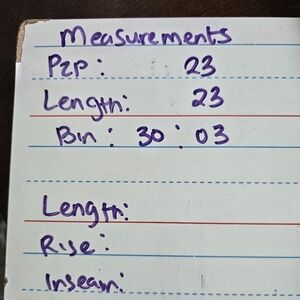 Measurements
P2P: 23
Length: 23
Bin: 30 : 03
Length:
Rise:
Inseam: